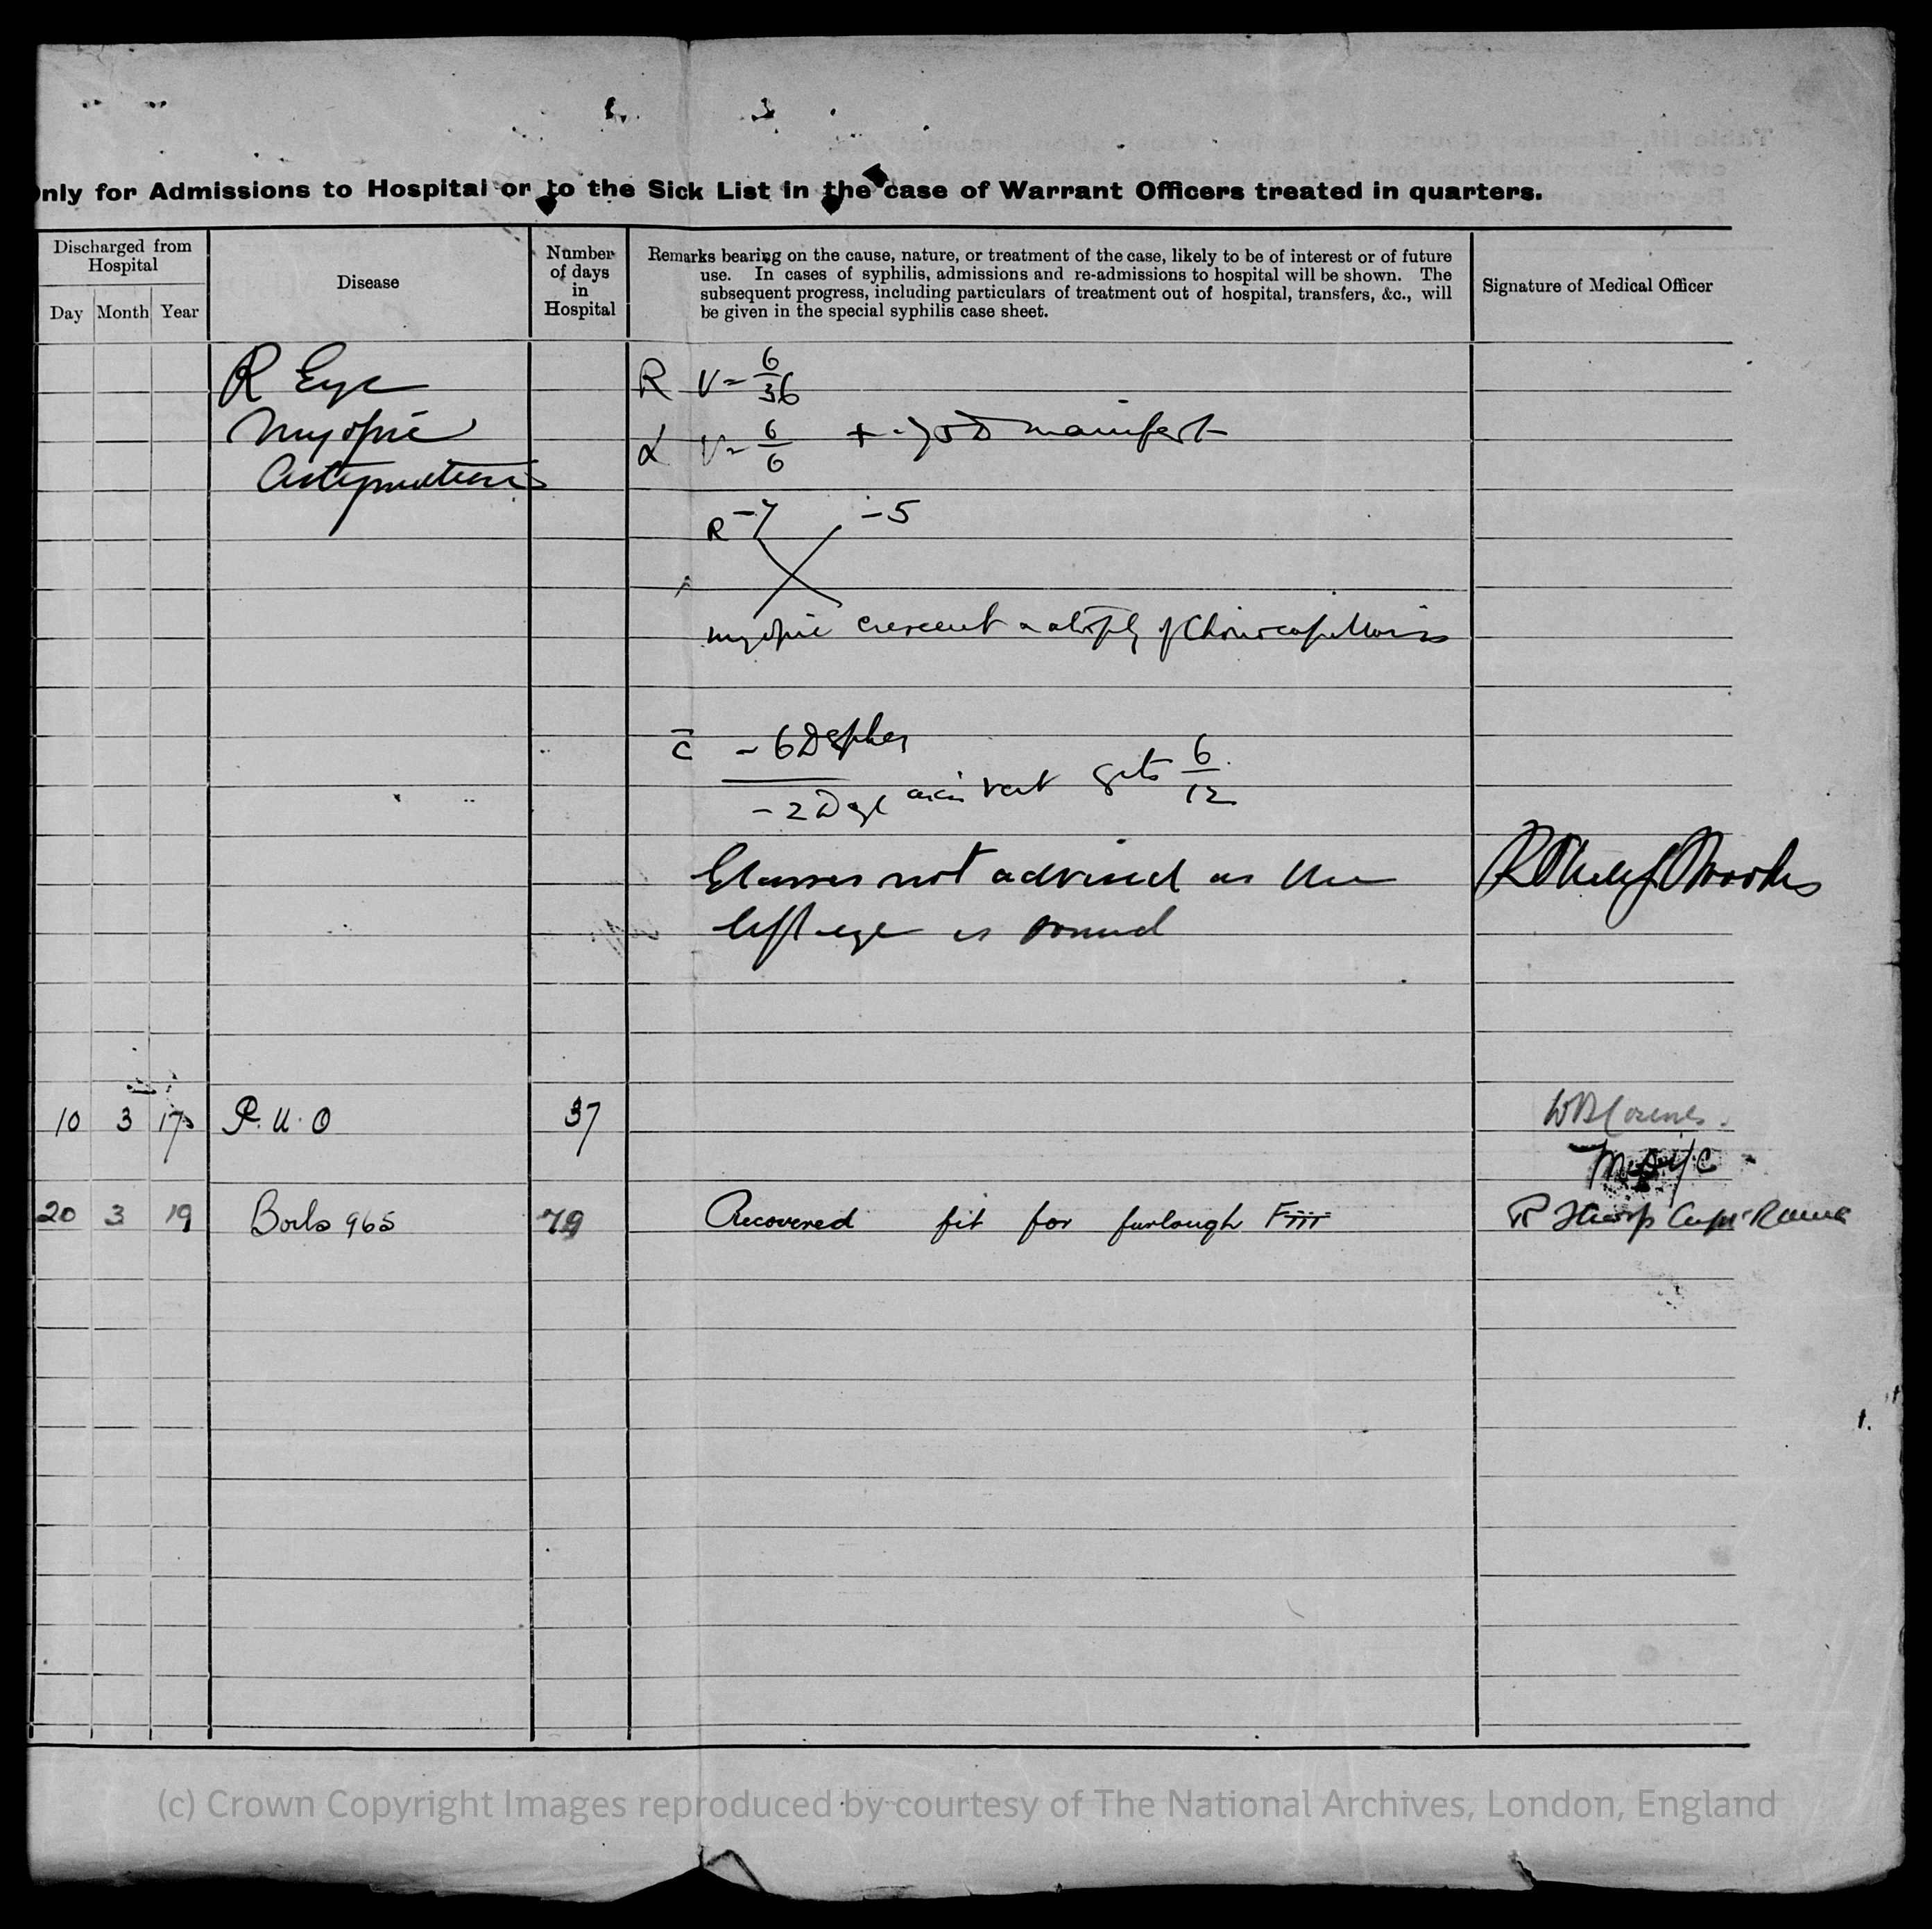 Only for Admissions to Hospital or to the Sick List in the case of Warrant Officers treated in quarters.
Discharged from
Hospital
Day Month Year
Disease
Number
of days
in
Hospital
Remarks bearing on the cause, nature, or treatment of the case, likely to be of interest or of future
use. In cases of syphilis, admissions and re-admissions to hospital will be shown. The
subsequent progress, including particulars of treatment out of hospital, transfers, &c., will
be given in the special syphilis case sheet.
Signature of Medical Officer
R Eye
Myopic
Astigmatism
R V = 6/36
L V = 6/6 + .75 D manifest
R -7 -5
myopic crescent atrophy of Choriocapillaris
c̄ - 6 D spher
- 2 D cyl axis vert gets 6/12
Glasses not advised as the
left eye is sound
10 3 17 P.U.O 37
20 3 19 Boils 965 79 Recovered fit for furlough Fiii Capt
(c) Crown Copyright Images reproduced by courtesy of The National Archives, London, England